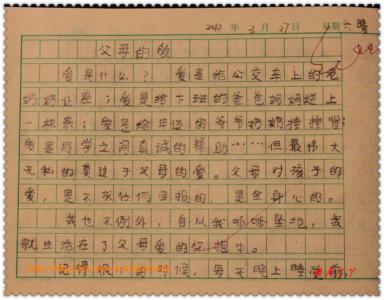 2010年3月27日 星期六 晴
父母的爱
爱是什么?爱是给公交车上的老
奶奶让座;爱是给下班的爸爸妈妈送上
一杯茶;爱是给年迈的爷爷奶奶捶捶背;
爱是同学之间真诚的帮助……但最伟大
无私的莫过于父母的爱。父母对孩子的
爱,是不求任何回报的,是全身心的。
我也不例外,自从我呱呱坠地,我
就生活在了父母爱的怀抱中。
记得很 的时候,每天晚上睡觉前